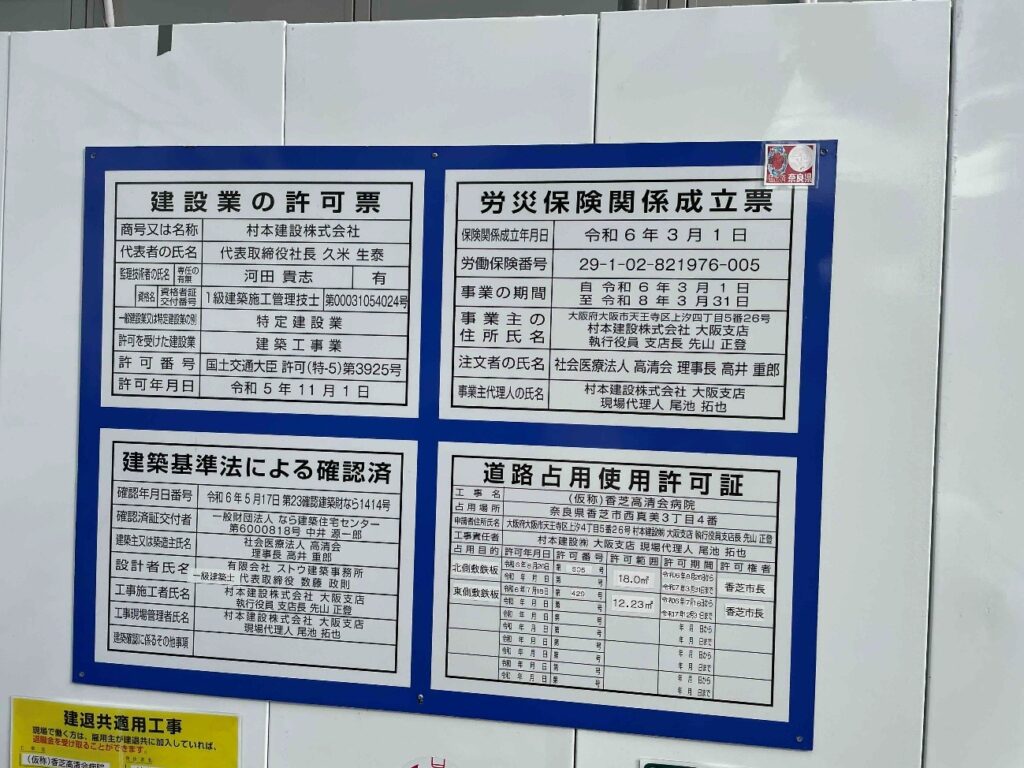 奈良県
建設業の許可票
商号又は名称 村本建設株式会社
代表者の氏名 代表取締役社長 久米 生泰
監理技術者の氏名 専任の有無 河田 貴志 有
資格名 資格者証交付番号 1級建築施工管理技士 第00031054024号
一般建設業又は特定建設業の別 特定建設業
許可を受けた建設業 建築工事業
許可番号 国土交通大臣 許可(特-5)第3925号
許可年月日 令和5年11月1日
労災保険関係成立票
保険関係成立年月日 令和6年3月1日
労働保険番号 29-1-02-821976-005
事業の期間 自 令和6年3月1日
至 令和8年3月31日
事業主の住所氏名 大阪府大阪市天王寺区上汐四丁目5番26号
村本建設株式会社 大阪支店
執行役員 支店長 先山 正登
注文者の氏名 社会医療法人 高清会 理事長 高井 重郎
事業主代理人の氏名 村本建設株式会社 大阪支店
現場代理人 尾池 拓也
建築基準法による確認済
確認年月日番号 令和6年5月17日 第23確認建築財なら1414号
確認済証交付者 一般財団法人 なら建築住宅センター
第6000818号 中井 源一郎
建築主又は築造主氏名 社会医療法人 高清会
理事長 高井 重郎
設計者氏名 有限会社 ストウ建築事務所
一級建築士 代表取締役 数藤 政則
工事施工者氏名 村本建設株式会社 大阪支店
執行役員 支店長 先山 正登
工事現場管理者氏名 村本建設株式会社 大阪支店
現場代理人 尾池 拓也
建築確認に係るその他事項
道路占用使用許可証
工事名 (仮称)香芝高清会病院
占用場所 奈良県香芝市西真美3丁目4番
申請者住所氏名 大阪府大阪市天王寺区上汐4丁目5番26号 村本建設㈱ 大阪支店 執行役員支店長 先山 正登
工事責任者 村本建設㈱ 大阪支店 現場代理人 尾池 拓也
占用目的 許可年月日 許可番号 許可範囲 許可期間 許可権者
北側敷鉄板 18.0㎡ 香芝市長
令和 年 月 日 第 号
東側敷鉄板 第 429 号 12.23㎡ 香芝市長
令和 年 月 日 第 号
令和 年 月 日 第 号 年 月 日から
令和 年 月 日 第 号 年 月 日まで
令和 年 月 日 第 号 年 月 日から
令和 年 月 日 第 号 年 月 日まで
令和 年 月 日 第 号 年 月 日から
令和 年 月 日 第 号 年 月 日まで
建退共適用工事
現場で働く方は、雇用主が建退共に加入していれば、
退職金を受け取ることができます。
(仮称)香芝高清会病院